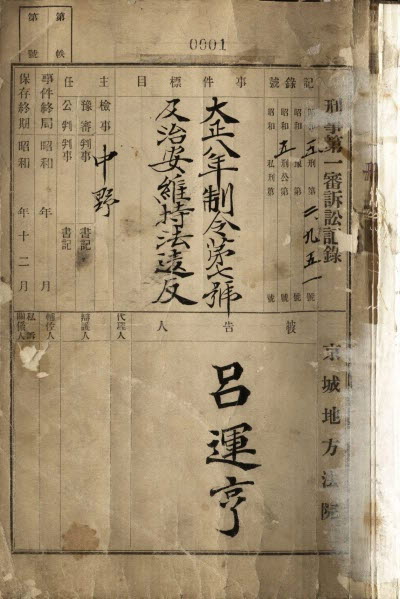 0001
第 帙
第 號
刑事第一審訴訟記錄
京城地方法院
記錄號
昭和五刑第二、九五一號
昭和 第 號
昭和五刑公第 號
昭和 私刑第 號
事件標目
大正八年制令第七號
及治安維持法違反
主任
檢事 中野
豫審判事 書記
公判判事 書記
事件終局 昭和 年 月
保存終期 昭和 年十二月
被告人
呂運亨
代理人
辯護人
輔佐人
私訴關係人